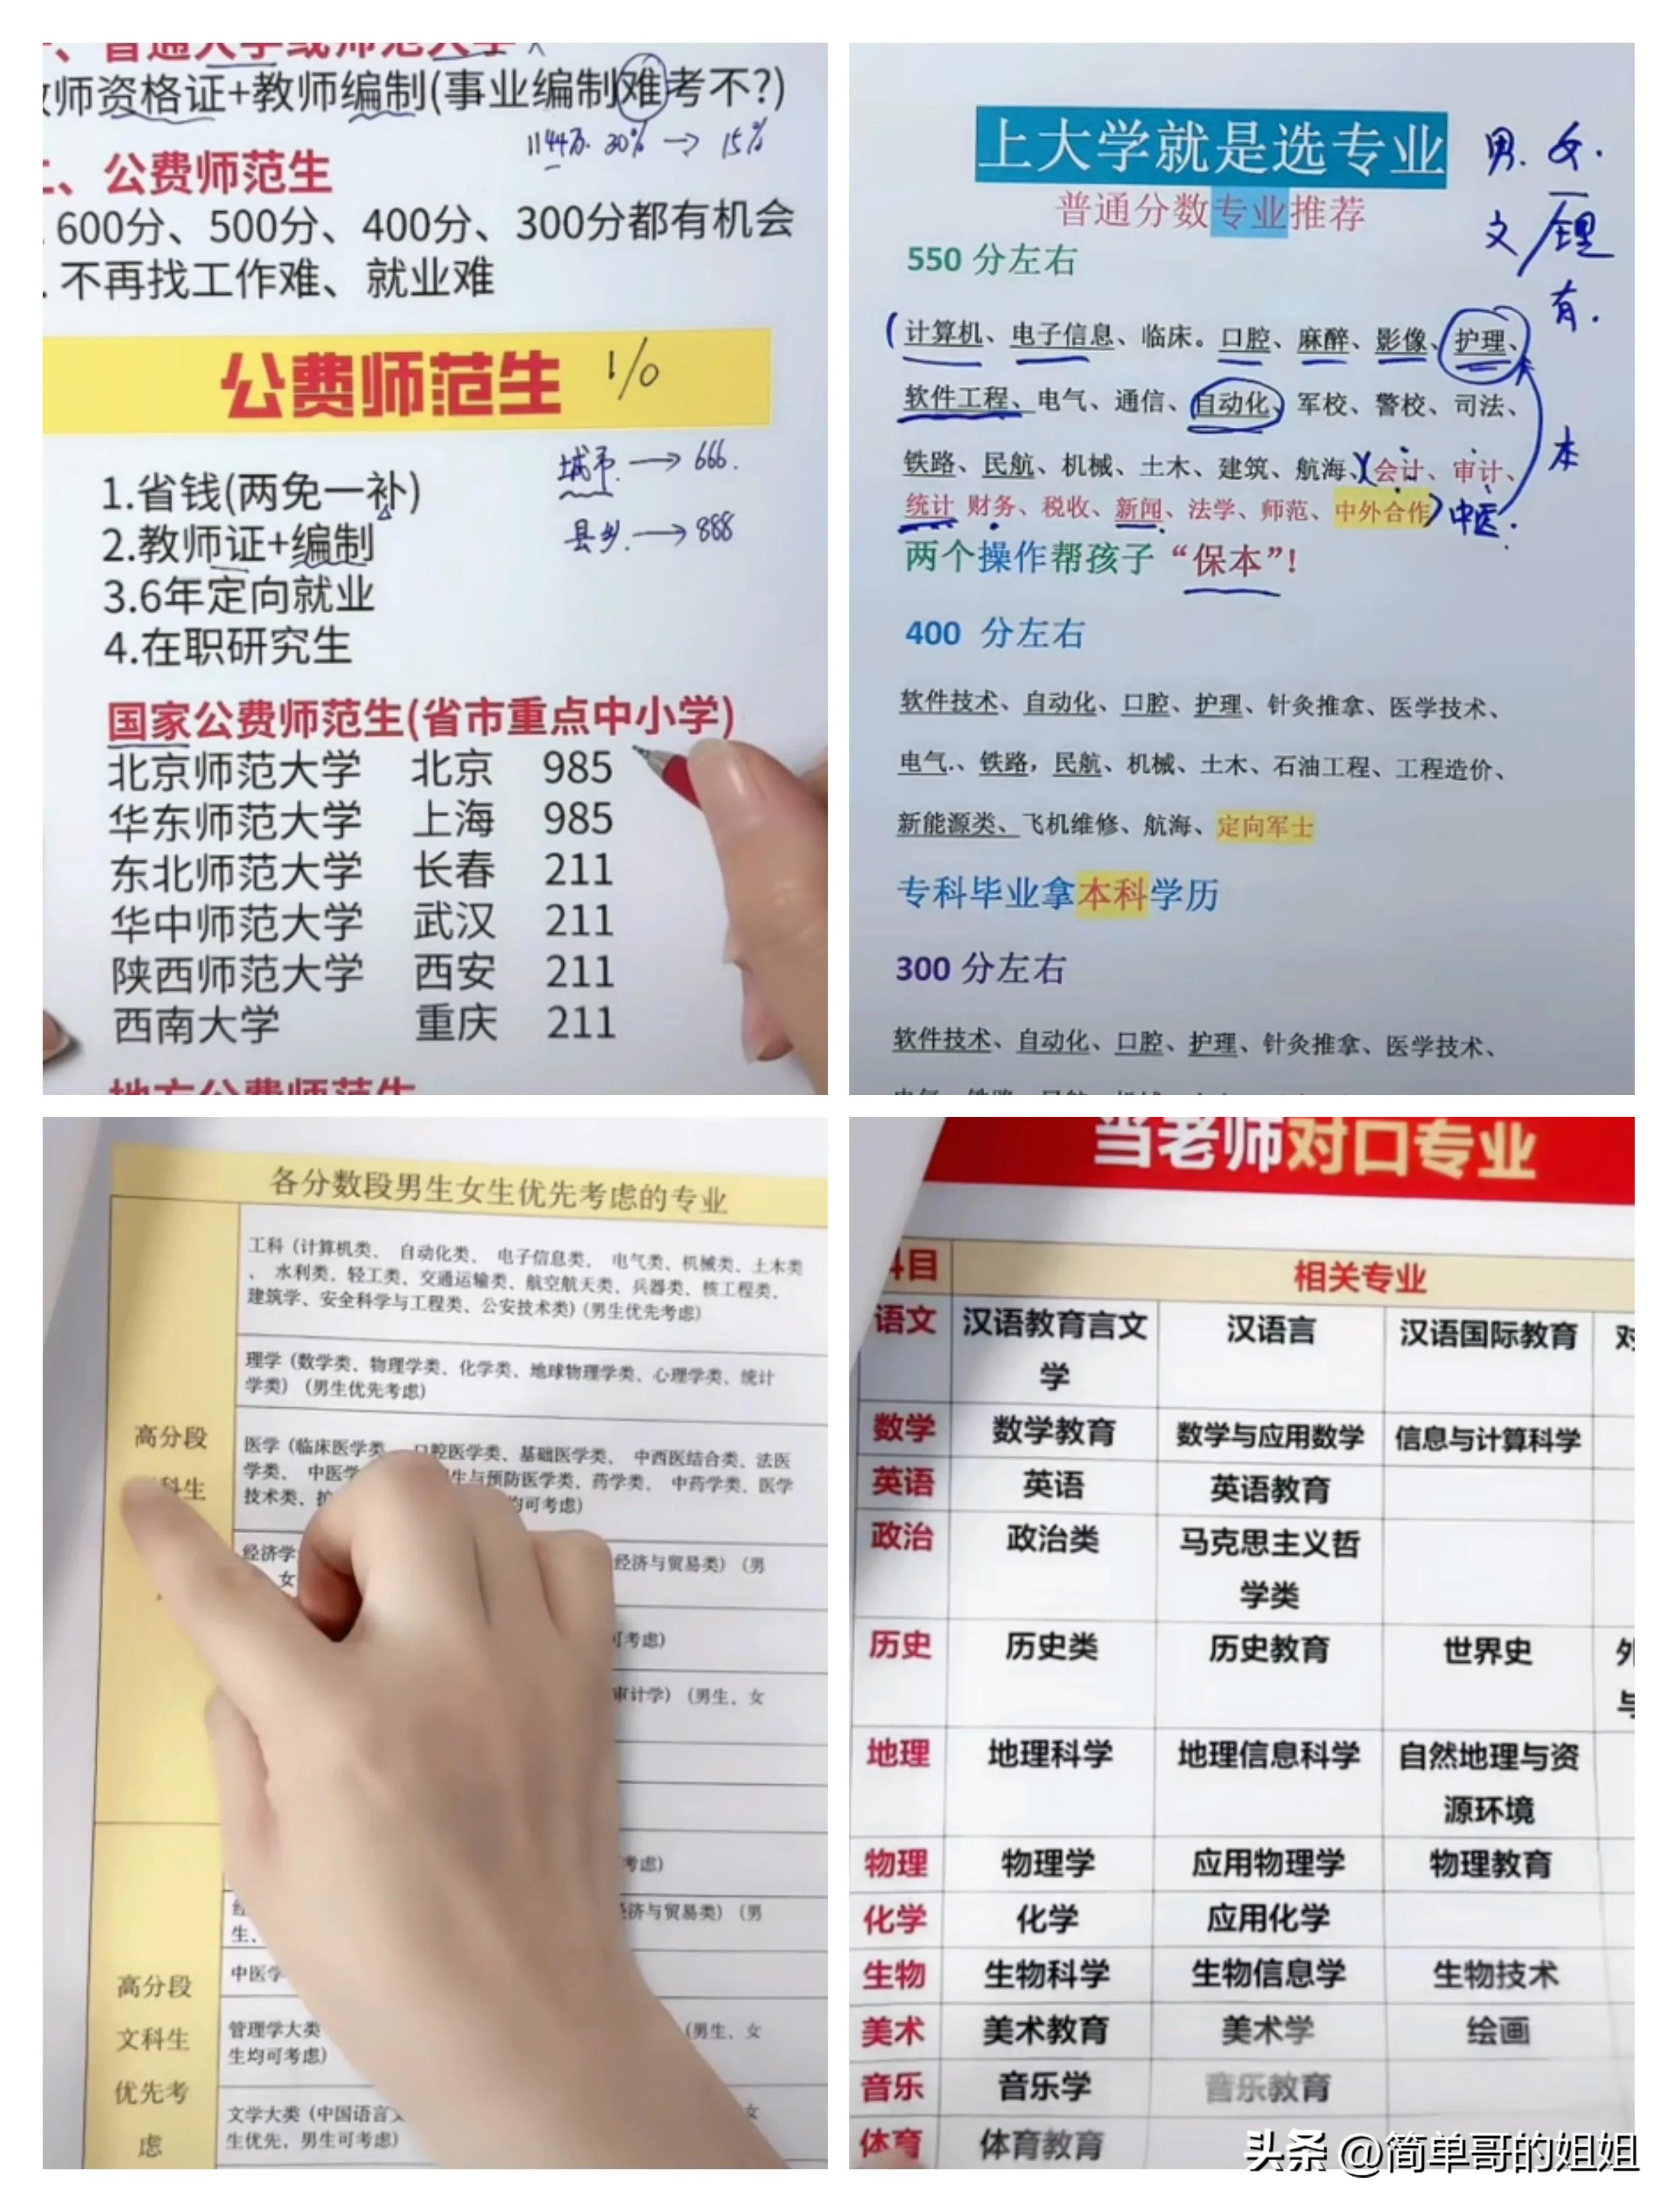 一、普通大学或师范大学
教师资格证+教师编制(事业编制难考不?)
1144万. 30% → 15%
二、公费师范生
600分、500分、400分、300分都有机会
不再找工作难、就业难
公费师范生 1/0
1.省钱(两免一补)
城市. → 666.
2.教师证+编制
县乡. → 888
3.6年定向就业
4.在职研究生
国家公费师范生(省市重点中小学)
北京师范大学 北京 985
华东师范大学 上海 985
东北师范大学 长春 211
华中师范大学 武汉 211
陕西师范大学 西安 211
西南大学 重庆 211
地方公费师范生
上大学就是选专业
男. 女.
普通分数专业推荐
文/理
有.
550 分左右
(计算机、电子信息、临床。口腔、麻醉、影像、护理、
软件工程、电气、通信、自动化、军校、警校、司法、
本
铁路、民航、机械、土木、建筑、航海、)(会计、审计、
统计 财务、税收、新闻、法学、师范、中外合作)中医.
两个操作帮孩子“保本”!
400 分左右
软件技术、自动化、口腔、护理、针灸推拿、医学技术、
电气.、铁路，民航、机械、土木、石油工程、工程造价、
新能源类、飞机维修、航海、定向军士
专科毕业拿本科学历
300 分左右
软件技术、自动化、口腔、护理、针灸推拿、医学技术、
各分数段男生女生优先考虑的专业
工科（计算机类、 自动化类、 电子信息类、 电气类、机械类、土木类
、 水利类、轻工类、交通运输类、航空航天类、兵器类、核工程类、
建筑学、安全科学与工程类、公安技术类）(男生优先考虑)
理学（数学类、物理学类、化学类、地球物理学类、心理学类、统计
学类）（男生优先考虑）
高分段
科生
医学（临床医学类 口腔医学类、基础医学类、 中西医结合类、法医
学类、 中医学 生与预防医学类、药学类、 中药学类、医学
技术类、护 均可考虑）
经济学 经济与贸易类）（男
女
可考虑）
审计学）（男生、女
考虑）
经济与贸易类）（男
生、
中医学
高分段
文科生
优先考
虑
管理学大类 （男生、女
生均可考虑）
文学大类（中国语言文 女
生优先，男生可考虑）
当老师对口专业
科目 相关专业
语文 汉语教育言文学 汉语言 汉语国际教育 对
数学 数学教育 数学与应用数学 信息与计算科学
英语 英语 英语教育
政治 政治类 马克思主义哲学类
历史 历史类 历史教育 世界史 外
与
地理 地理科学 地理信息科学 自然地理与资源环境
物理 物理学 应用物理学 物理教育
化学 化学 应用化学
生物 生物科学 生物信息学 生物技术
美术 美术教育 美术学 绘画
音乐 音乐学 音乐教育
体育 体育教育
头条 @简单哥的姐姐